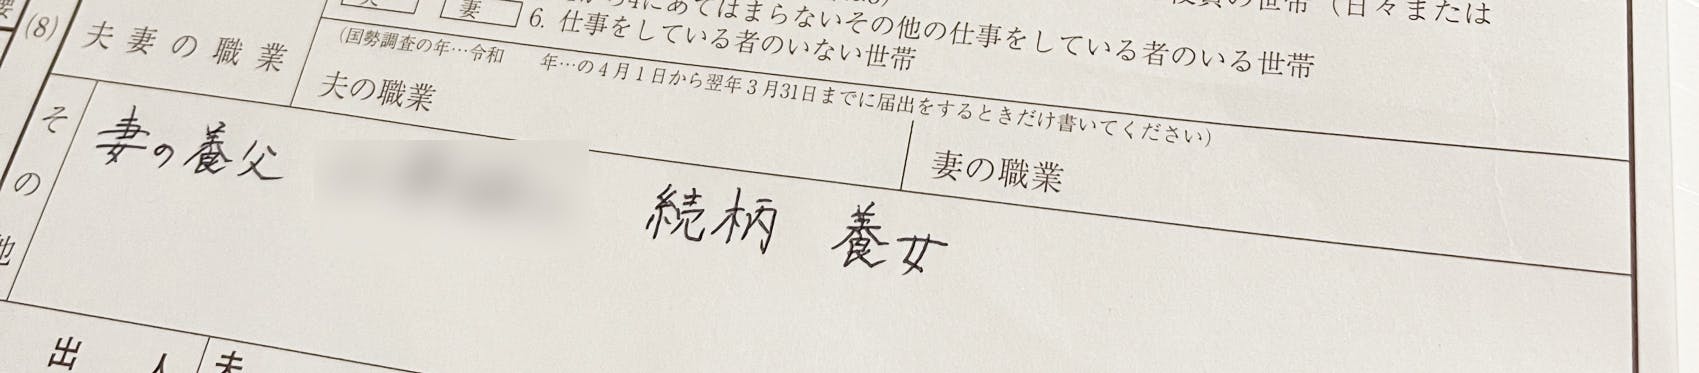 (8)
夫妻の職業
夫
妻
4にあてはまらないその他の仕事をしている者のいる世帯
世帯(日々または
6. 仕事をしている者のいない世帯
(国勢調査の年…令和　　年…の4月1日から翌年3月31日までに届出をするときだけ書いてください)
夫の職業
妻の職業
その他
妻の養父
続柄　養女
出　人
夫